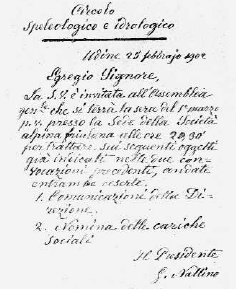 Circolo
Speleologico e idrologico
Udine 25 febbrajo 1902
Egregio Signore,
La S.V. è invitata all'Assemblea
gen.le che si terrà la sera del 1° marzo
p.v. presso la Sede della Società
alpina friulana alle ore 20,30
per trattare sui seguenti oggetti
già indicati nelle due con-
vocazioni precedenti, andate
entrambe deserte.
1. Comunicazioni della Di-
rezione.
2. Nomina delle cariche
sociali
Il Presidente
G. Nallino